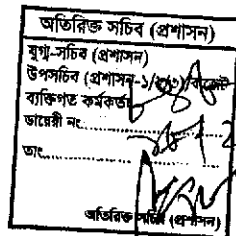 অতিরিক্ত সচিব (প্রশাসন)
যুগ্ম-সচিব (প্রশাসন)
উপসচিব (প্রশাসন-১/২/৩)/বাজেট
ব্যক্তিগত কর্মকর্তা
ডায়েরী নং
তাং
অতিরিক্ত সচিব (প্রশাসন)